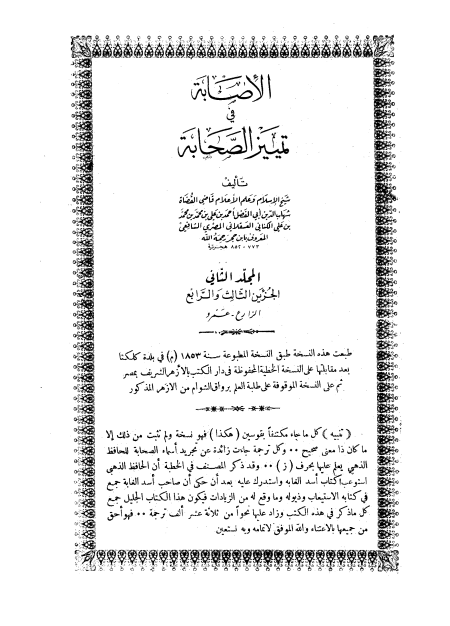 الإصابة
في
تمييز الصحابة
تأليف
شيخ الإسلام وعلم الأعلام قاضي القضاة
شهاب الدين أبي الفضل أحمد بن علي بن محمد بن محمد
بن علي الكناني العسقلاني المصري الشافعي
المعروف بابن حجر رحمه الله
٧٧٣ - ٨٥٢ هجرية
المجلد الثاني
الجزئين الثالث والرابع
الزارع - عمرو
طبعت هذه النسخة طبق النسخة المطبوعة سنة ١٨٥٣ (م) في بلدة كلكتا
بعد مقابلتها على النسخة الخطية المحفوظة في دار الكتب بالأزهر الشريف بمصر
ثم على النسخة الموقوفة على طلبة العلم برواق الشوام من الازهر المذكور
( تنبيه ) كل ما جاء مكتنفاً بقوسين ( هكذا ) فهو نسخة ولم تثبت من ذلك إلا
ما كان ذا معنى صحيح ٠٠ وكل ترجمة جاءت زائدة عن تجريد أسماء الصحابة للحافظ
الذهبي يعلم عليها بحرف ( ز ) ٠٠ وقد ذكر المصنف في الخطبة أن الحافظ الذهبي
استوعب كتاب أسد الغابه واستدرك عليه بعد أن حكى أن صاحب أسد الغابة جمع
في كتابه الاستيعاب وذيوله وما وقع له من الزيادات فيكون هذا الكتاب الجليل جمع
كل ما ذكر في هذه الكتب وزاد عليها نحواً من ثلاثة عشر ألف ترجمة ٠٠ فهو أحق
من جميعها بالاعتناء والله الموفق لاتمامه وبه نستعين